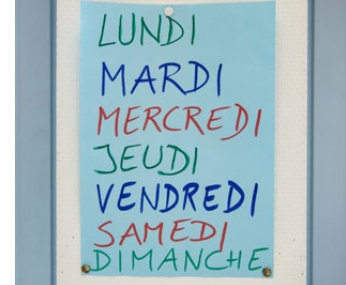 LUNDI
MARDI
MERCREDI
JEUDI
VENDREDI
SAMEDI
DIMANCHE